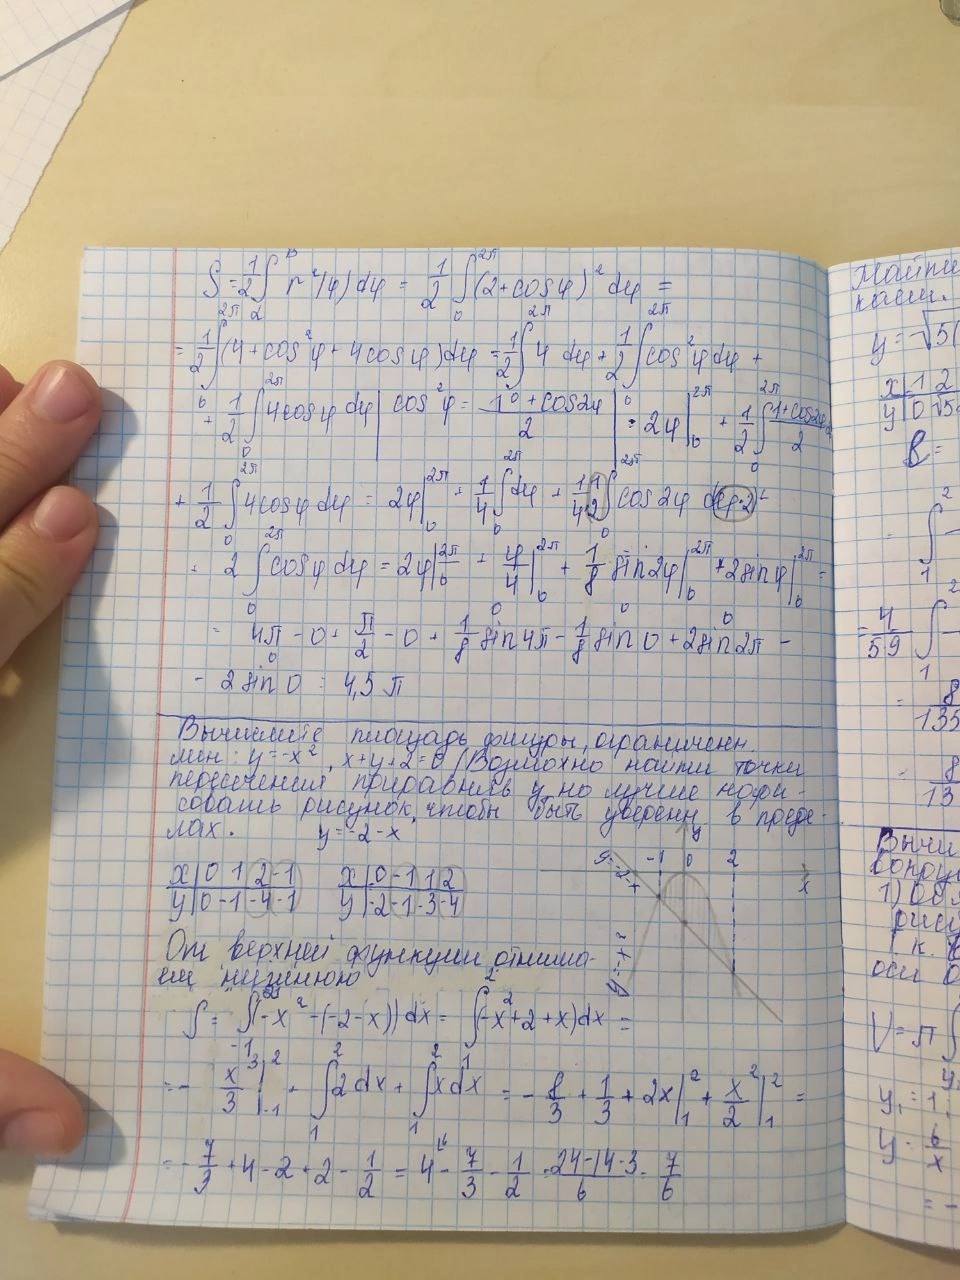 S = 1/2 ∫_α^β r²(φ) dφ = 1/2 ∫_0^{2π} (2+cosφ)² dφ =
= 1/2 ∫_0^{2π} (4+cos²φ+4cosφ)dφ = 1/2 ∫_0^{2π} 4 dφ + 1/2 ∫_0^{2π} cos²φ dφ +
+ 1/2 ∫_0^{2π} 4cosφ dφ | cos²φ = (1+cos2φ)/2 | = 2φ|_0^{2π} + 1/2 ∫_0^{2π} (1+cos2φ)/2
+ 1/2 ∫_0^{2π} 4cosφ dφ = 2φ|_0^{2π} + 1/4 ∫_0^{2π} dφ + 1/4 · 1/2 ∫_0^{2π} cos2φ d(φ·2) +
+ 2 ∫_0^{2π} cosφ dφ = 2φ|_0^{2π} + φ/4|_0^{2π} + 1/8 sin2φ|_0^{2π} + 2sinφ|_0^{2π} =
= 4π - 0 + π/2 - 0 + 1/8 sin4π - 1/8 sin0 + 2sin2π -
- 2sin0 = 4,5π
Вычислите площадь фигуры, ограниченн.
лин: y=-x², x+y+2=0 (Возможно найти точки
пересечения приравняв y, но лучше нари-
совать рисунок, чтобы быть уверенн в преде-
лах. y=-2-x
x | 0 1 2 -1
y | 0 -1 -4 -1
x | 0 -1 1 2
y | -2 -1 -3 -4
-1 0 2
y
x
y=-2-x
y=-x²
От верхней функции отнима-
ем нижнюю
S = ∫_{-1}^2 (-x²-(-2-x))dx = ∫_{-1}^2 (-x²+2+x)dx =
= - x³/3|_{-1}^2 + ∫_1^2 2dx + ∫_1^2 xdx = - 8/3 + 1/3 + 2x|_1^2 + x²/2|_1^2 =
= - 7/3 + 4 - 2 + 2 - 1/2 = 4 - 7/3 - 1/2 = (24-14-3)/6 = 7/6
Найти
y = √5(
x | 1 2
y | 0
ℓ =
∫_1^2
= 4/59 ∫_1^2
= 8/135
= 8/13
Вычи
1) Об
рису
т.к.
оси О
V = π ∫
y₁ = 1
y = 6/x
= -